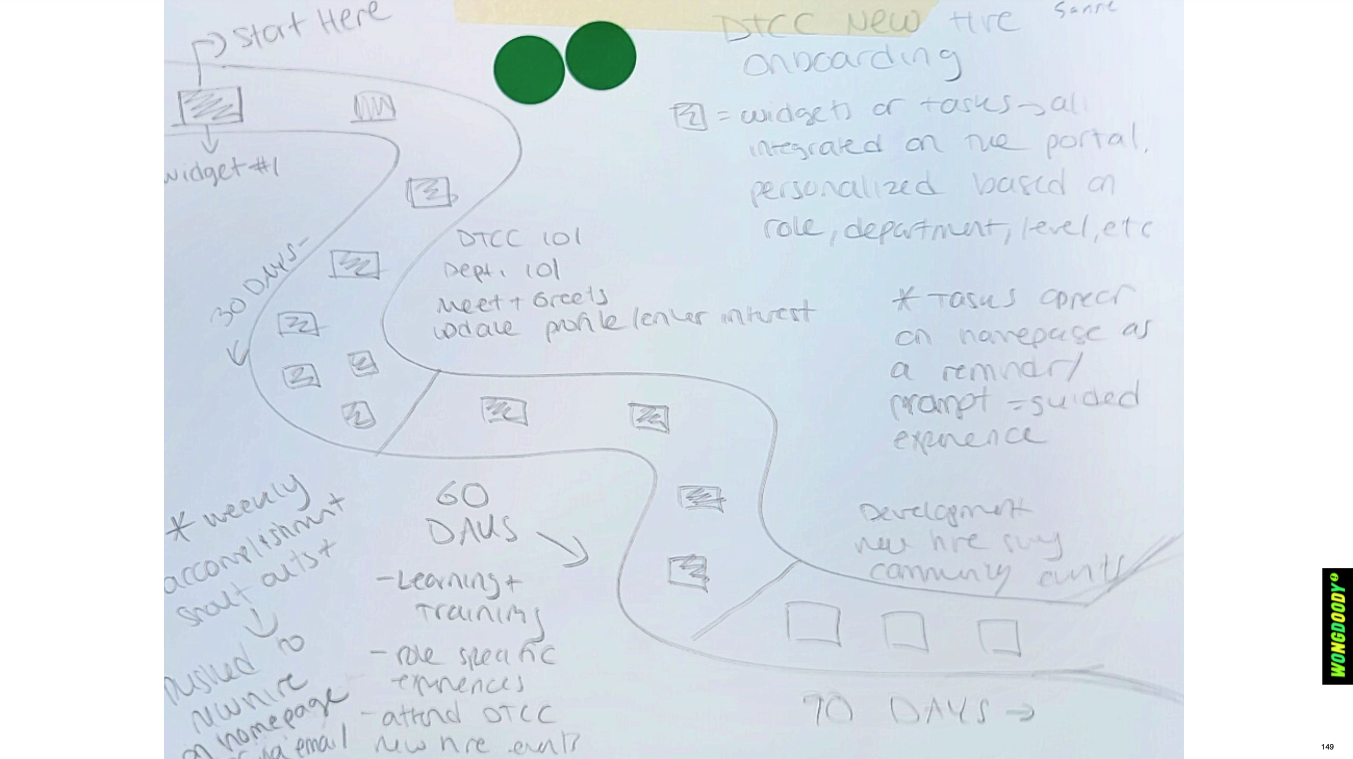 Start Here
DTCC New Hire
onboarding
= widgets or tasks → al
integrated on the portal,
personalized based on
role, department, level, etc
widget #1
30 DAYS
DTCC 101
Dept. 101
Meet + Greets
update profile/enter interest
* Tasks appear
on homepage as
a reminder/
prompt = guided
experience
* weekly
accomplishment
shout outs +
pushed to
new hire
on homepage
via email
60
DAYS
- Learning +
Training
- role specific
experiences
- attend DTCC
new hire event?
Development
new hire survey
community events
90 DAYS →
WONGDOODY
149